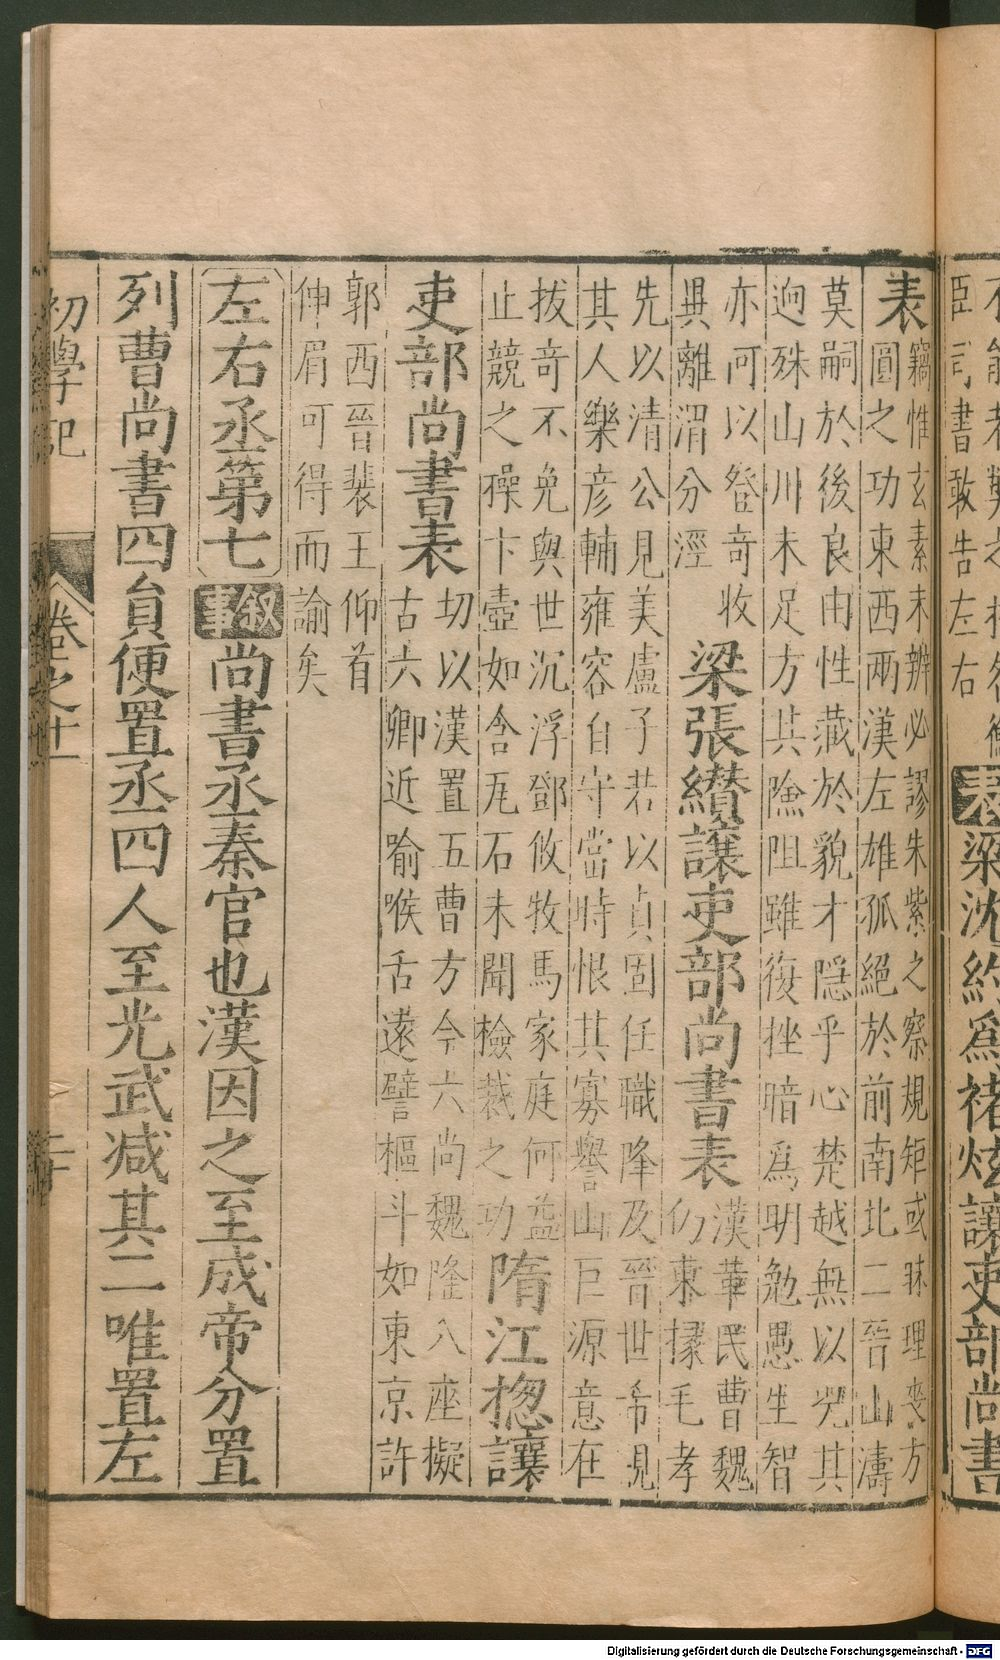 臣司書敢告左右
表梁沈約爲褚炫讓吏部尚書
表
竊惟玄素未辨必謬朱紫之察規矩或昧理喪方
圓之功東西兩漢左雄孤絕於前南北二晉山濤
莫嗣於後良由性藏於貌才隱乎心楚越無以况其
逈殊山川未足方其險阻雖復挫暗爲明勉愚生智
亦可以登奇收
異離渭分涇
梁張纘讓吏部尚書表
漢華民曹魏
仍東掾毛孝
先以清公見美盧子若以貞固任職降及晉世希見
其人樂彦輔雍容自守當時恨其寡譽山巨源意在
拔奇不免與世沉浮鄧攸牧馬家庭何益
止競之操卞壺如含瓦石未聞檢裁之功
隋江揔讓
吏部尚書表
切以漢置五曹方今六尚魏隆八座擬
古六卿近喻喉舌遠譬樞斗如東京許
郭西晉裴王仰首
伸眉可得而諭矣
左右丞第七 叙事 尚書丞秦官也漢因之至成帝分置
列曹尚書四貟便置丞四人至光武减其二唯置左
初學記 卷之十一 二十
Digitalisierung gefördert durch die Deutsche Forschungsgemeinschaft - DFG